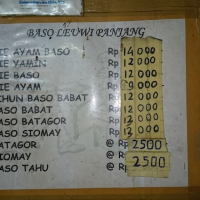 BASO LEUWI PANJANG
IE AYAM BASO Rp 14000
IE YAMIN Rp 12000
IE BASO Rp 12000
IE AYAM Rp 9000
IHUN BASO BABAT Rp 12000
ASO BABAT Rp 12000
ASO BATAGOR Rp 12000
ASO SIOMAY Rp 12000
ATAGOR @ Rp 2500
IOMAY @ Rp 2500
ASO TAHU @ Rp